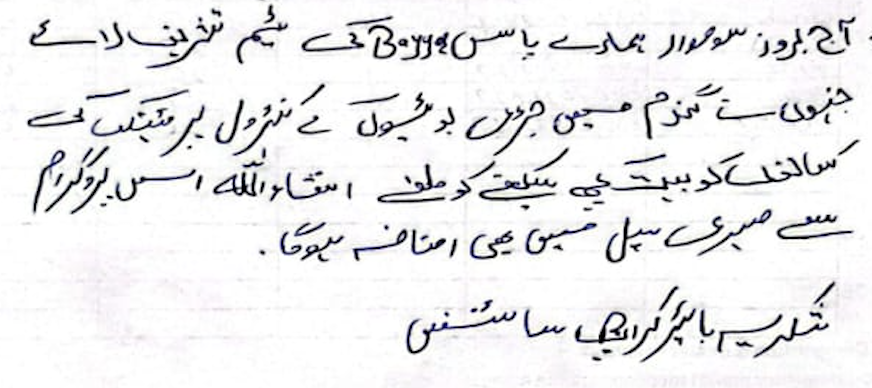 آج بروز سوموار ہمارے پاس Bayer کی ٹیم تشریف لائے
جنہوں نے گندم میں جڑی بوٹیوں کے کنٹرول پر میٹنگ کی
کسانوں کو بہت کچھ سیکھنے کو ملا انشاءاللہ اس پروگرام
سے میری سیل میں بھی اضافہ ہوگا۔
شکریہ بائیر کراپ سائنس